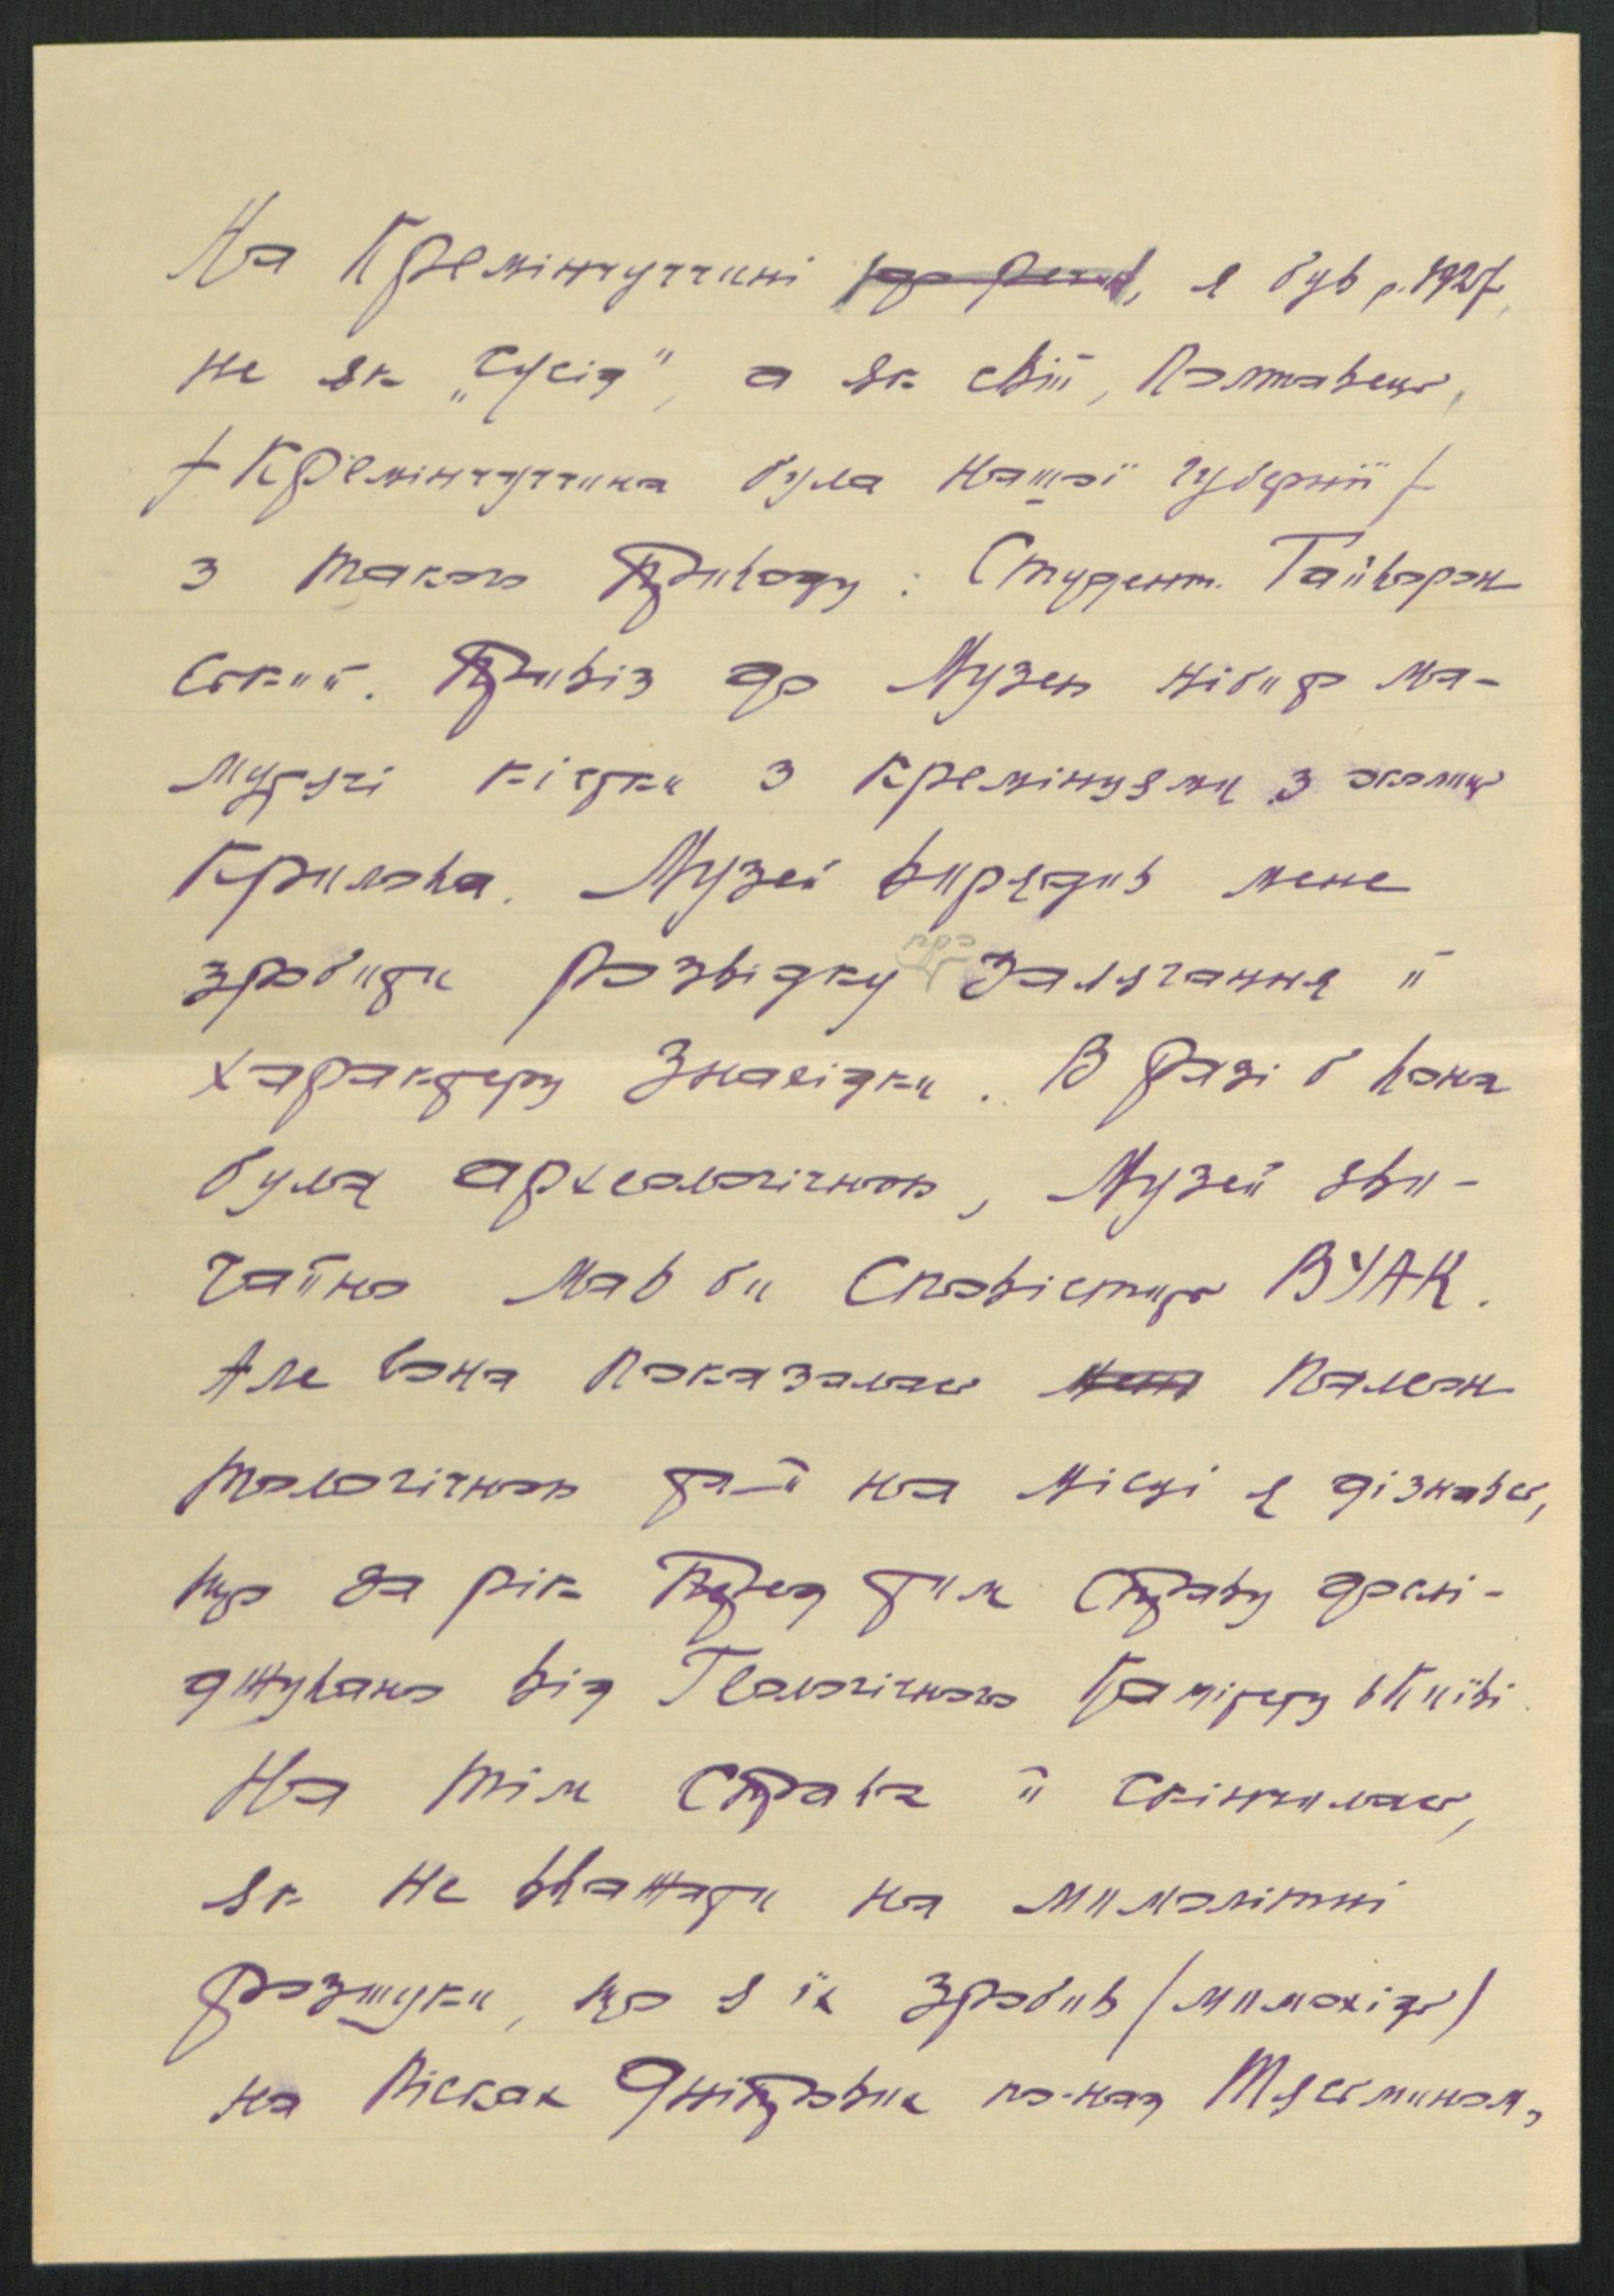 На Кремінчуччині до речи, я був р. 1927,
не як „сусід”, а як свій, Полтавець,
/ Кремінчуччина була нашої губернії /
з такого приводу: Студент Гайворон
ський. Привіз до Музею нібито ма-
мутячі кістки з кремінцями з околиць
Крилова. Музей вирядив мене
зробити розвідку про залягання й
характеру знахідки. В разі б вона
була археологічною, Музей зви-
чайно мав би сповістить ВУАК.
Але вона показалась палеон
тологічною та-й на місці я дізнавсь,
що за рік перед тим справу дослі-
джувано від Геологічного Комітету в Київі.
На тім справа й скінчилась,
як не вважати на мимолітні
розшуки, що я їх зробив (мимохідь)
на пісках Дніпрових по-над Тясьмином,